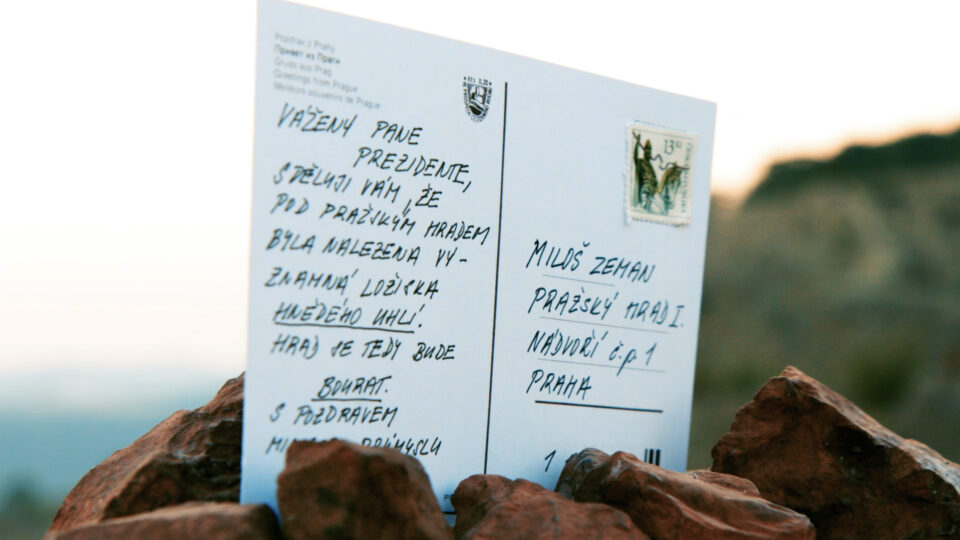 Pozdrav z Prahy
Привет из Праги
Gruss aus Prag
Greetings from Prague
Meilleurs souvenirs de Prague
VÁŽENÝ PANE
PREZIDENTE,
SDĚLUJI VÁM, ŽE
POD PRAŽSKÝM HRADEM
BYLA NALEZENA VÝ-
ZNAMNÁ LOŽISKA
HNĚDÉHO UHLÍ.
HRAD SE TEDY BUDE
BOURAT.
S POZDRAVEM
PRŮMYSLU
13 Kčs
MILOŠ ZEMAN
PRAŽSKÝ HRAD I.
NÁDVOŘÍ č.p. 1
PRAHA
1